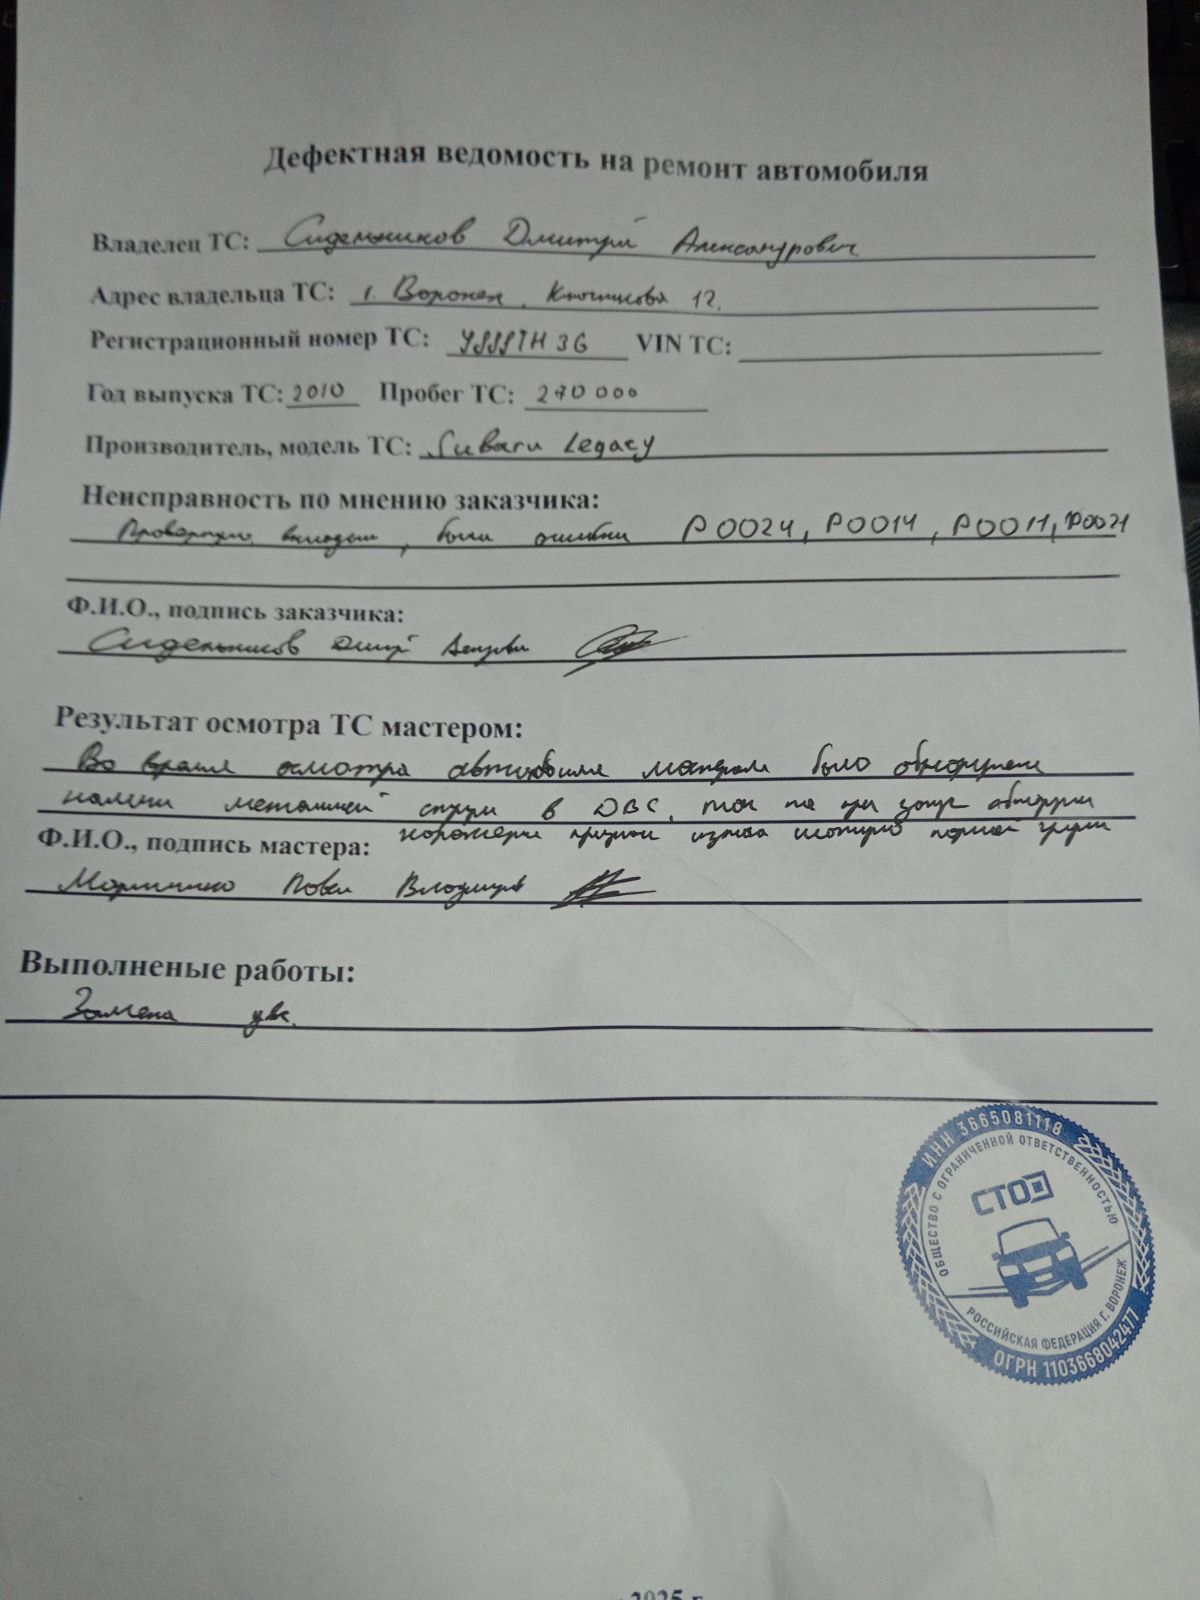 Дефектная ведомость на ремонт автомобиля
Владелец ТС: Сидельников Дмитрий Александрович
Адрес владельца ТС: г. Воронеж, 12.
Регистрационный номер ТС: 36 VIN ТС:
Год выпуска ТС: 2010 Пробег ТС: 270 000
Производитель, модель ТС: Subaru Legacy
Неисправность по мнению заказчика:
вкладыш, были ошибки P0024, P0014, P0011, P0021
Ф.И.О., подпись заказчика:
Сидельников
Результат осмотра ТС мастером:
Во время осмотра автомобиля мастером было
в ДВС, так же при
Ф.И.О., подпись мастера:
Павел
Выполненые работы:
Замена двс.
ИНН 3665081118
ОБЩЕСТВО С ОГРАНИЧЕННОЙ ОТВЕТСТВЕННОСТЬЮ
СТО
РОССИЙСКАЯ ФЕДЕРАЦИЯ Г. ВОРОНЕЖ
ОГРН 1103668042477
2025 г.